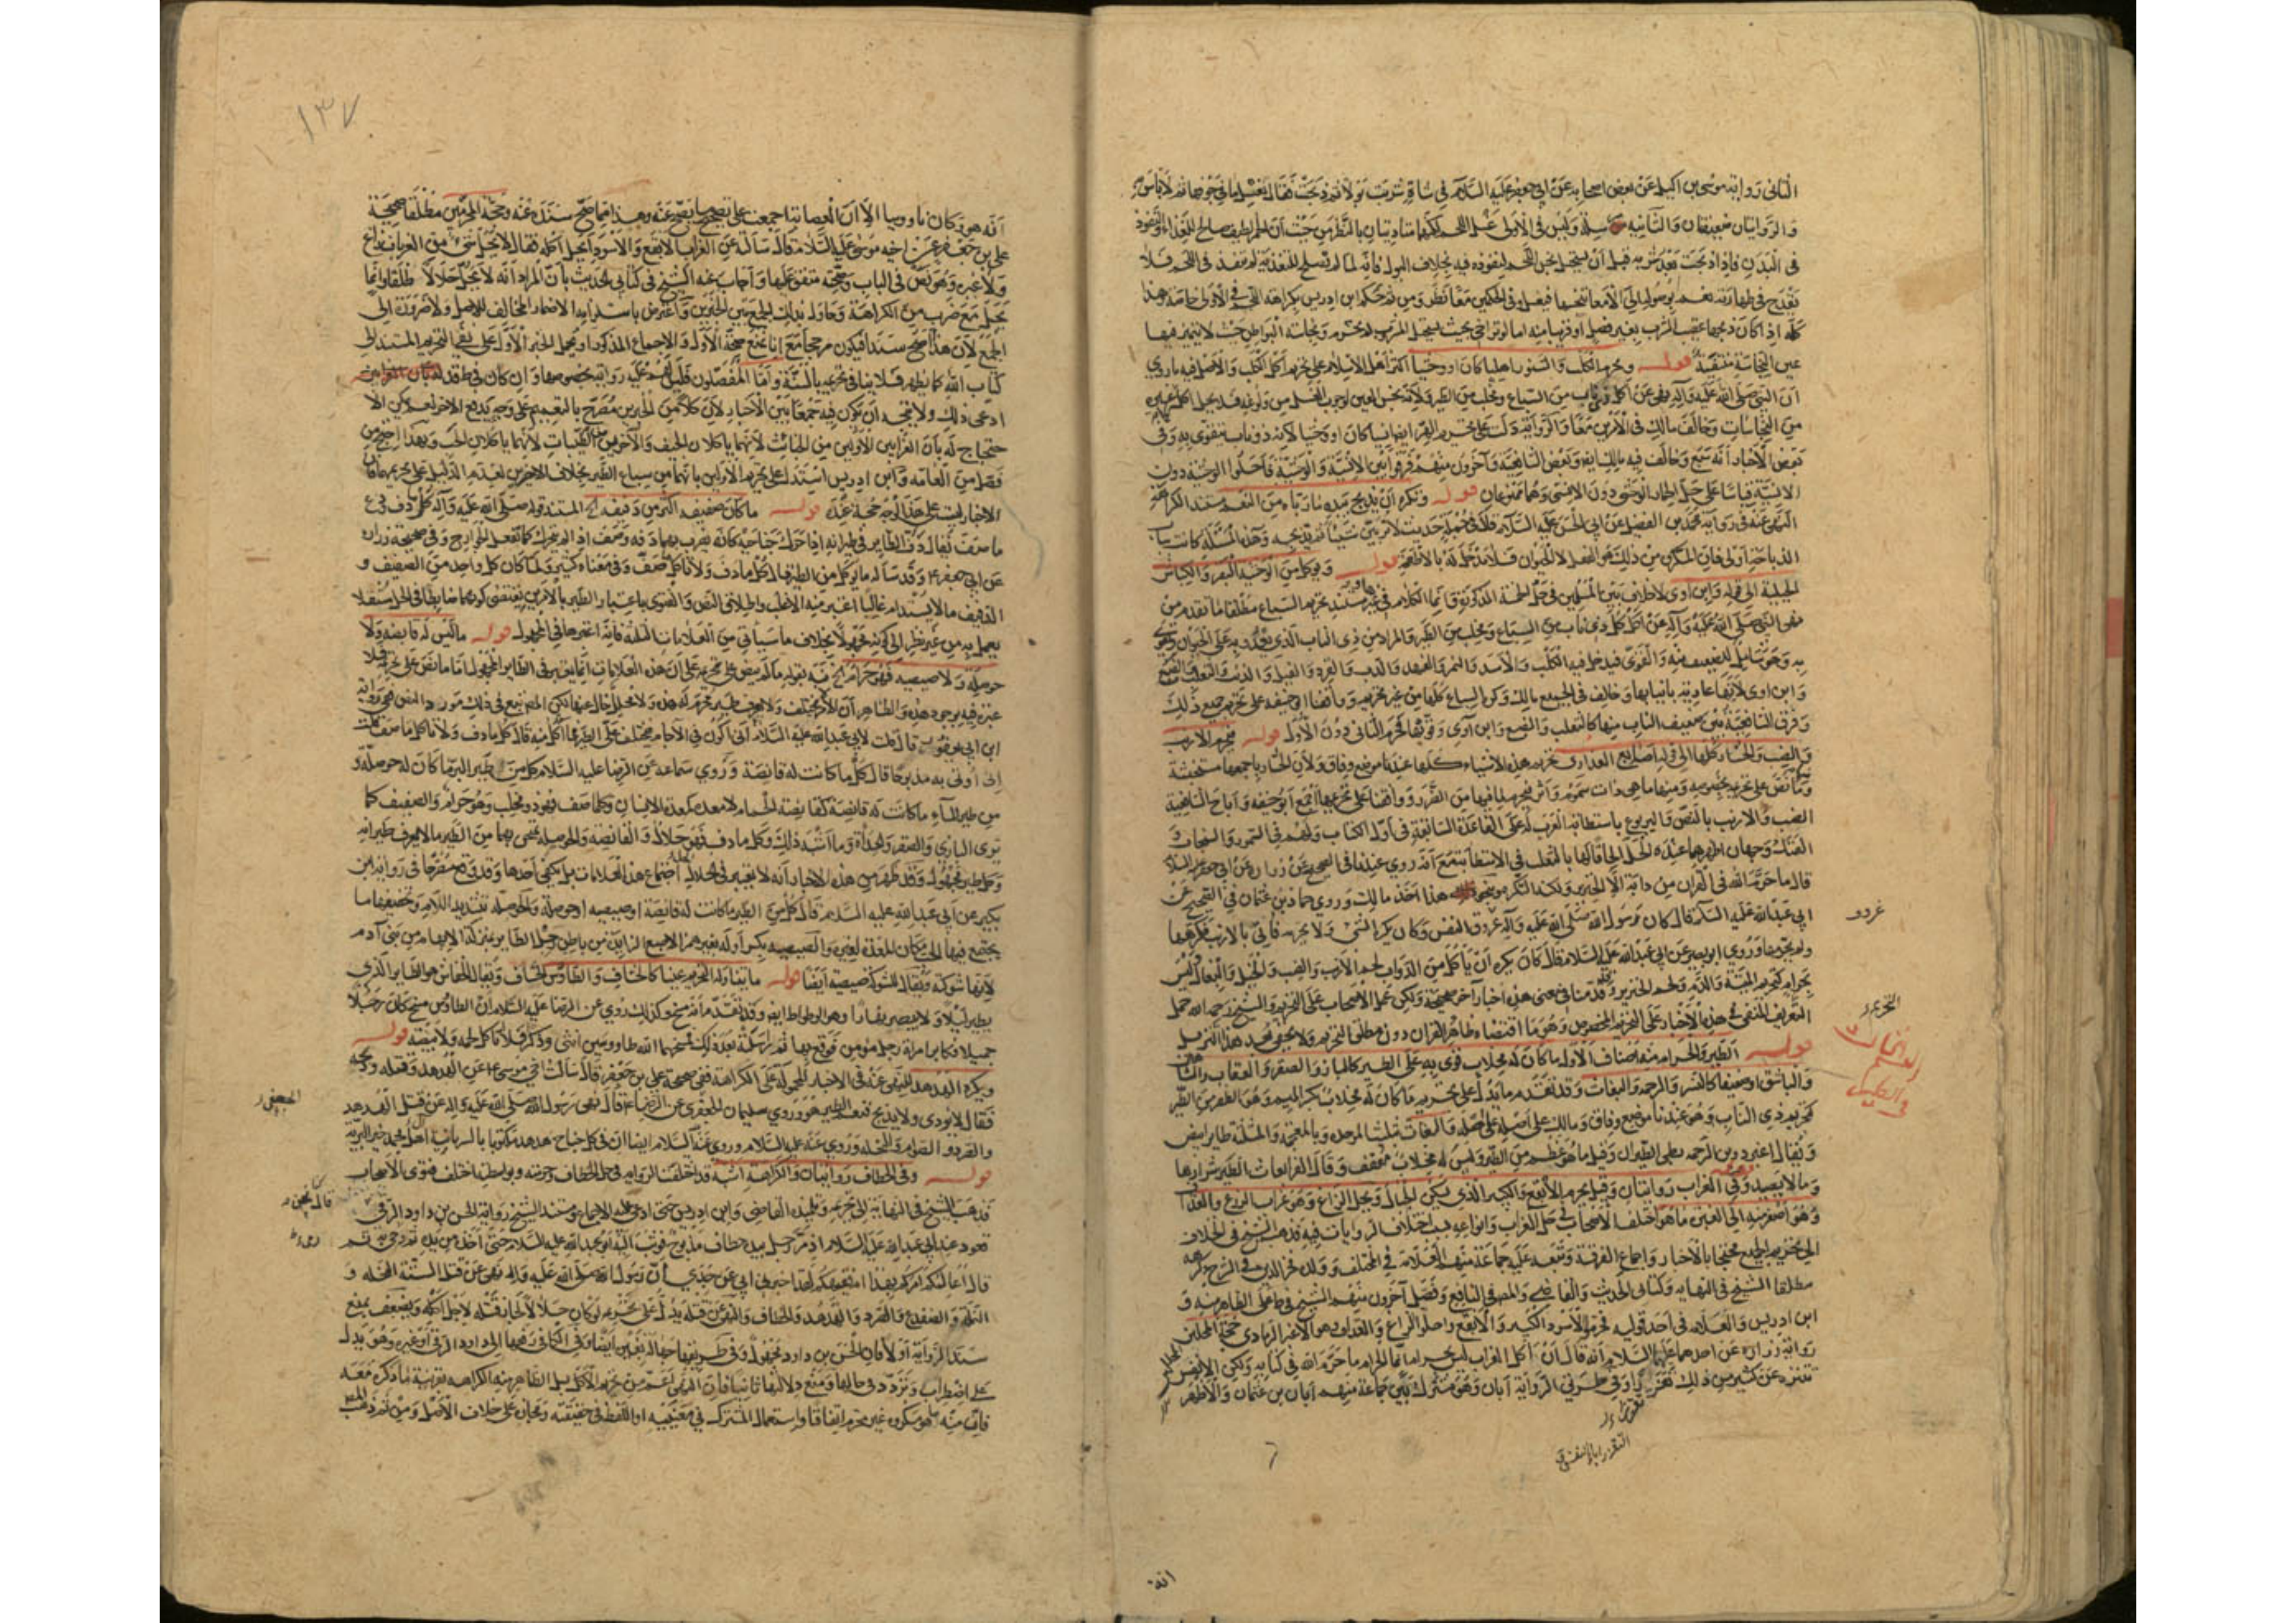 الثاني رواية موسى بن اكيل عن بعض اصحابه عن ابي جعفر عليه السلام في شاة شربت بولا ثم ذبحت فقال يغسل ما في جوفها ثم لا باس به
والروايتان ضعيفتان والثانية مرسلة وليس في الاولى غسل اللحم لكنها
في البدن فاذا ذبحت بعد شربه قبل ان يستحيل نجس اللحم بنفوذه فيه بخلاف البول فانه لما لم يصلح للغذاء لم ينفذ في اللحم فلا
يقدح في طهارته نعم
كله اذا كان ذبحها عقيب الشرب بغير فصل او قريبا منه اما لو تراخى بحيث يستحيل المشروب لم يحرم ونجاسة البواطن حيث لا يتميز فيها
عين النجاسة منتفية قوله ويحرم الكلب والسنور اهليا كان او وحشيا اكثر اهل الاسلام على تحريم اكل الكلب والاصل فيه ما روي
ان النبي صلى الله عليه وآله نهى عن اكل كل ذي ناب من السباع ومخلب من الطير ولانه نجس العين لوجوب الغسل من ولوغه فلا يحل اكله كغيره
من النجاسات وخالف مالك في الامرين معا والرواية دلت على تحريم الهر ايضا انسيا كان او وحشيا لانه ذو ناب يتقوى به وفي
بعض الاخبار انه سبع وخالف فيه مالك ايضا وبعض الشافعية وآخرون منهم فرقوا بين الانسية والوحشية فاحلوا الوحشية دون
الانسية قياسا على حل الحمار الوحشي دون الانسي وهما ممنوعان قوله ويكره ان يذبح بيده ما رباه من النعم مستند الكراهة
النهي عنه في رواية محمد بن الفضيل عن ابي الحسن عليه السلام قال في جملة حديث لا تربين شيئا ثم تذبحه وهذه المسئلة كانت بباب
الذباحة اولى فان المكروه من ذلك هو الفعل لا الحيوان فلا مدخل له بالاطعمة قوله ويؤكل من الوحشية البقر والكباش
الجبلية الى قوله وابن آوى لا خلاف بين المسلمين في حل الخمسة المذكورة وانما الكلام في غيرها ومستند تحريم السباع مطلقا ما تقدم من
نهي النبي صلى الله عليه وآله عن اكل كل ذي ناب من السباع ومخلب من الطير والمراد من ذي الناب الذي يعدو به على الحيوان ويقوى
به وهو شامل للضعيف منه والقوي فيدخل فيه الكلب والاسد والنمر والفهد والدب والقرد والفيل والذئب والثعلب والضبع
وابن آوى لانها عادية بانيابها وخالف في الجميع مالك وكره السباع كلها من غير تحريم ووافقنا ابو حنيفة على تحريم جميع ذلك
وفرق الشافعي بين ضعيف الناب منها كالثعلب والضبع وابن آوى وقويها فحرم الثاني دون الاول قوله يحرم الارنب
والضب والحشار كلها الى قوله تحريم هذه الاشياء كلها عندنا موضع وفاق ولان الحشار باجمعها مستخبثة
ومما نص على تحريمه بخصوصه ومنها ما هي ذات سموم وابر فتحرم لما فيها من الضرر ووافقنا على تحريمها اجمع ابو حنيفة واباح الشافعية
الضب والارنب بالنص واليربوع باستطابة العرب له على القاعدة السابقة في اول الكتاب ولهم في السمور والسنجاب و
الفنك وجهان اظهرهما عنده الحل الحاقا لها بالثعلب في الاستطابة مع انه روي عندنا في الصحيح عن زرارة عن ابي جعفر عليه السلام
قال ما حرم الله في القرآن من دابة الا الخنزير ولكنه التكره هذا اخذ مالك وروى حماد بن عثمان في الصحيح عن
ابي عبد الله عليه السلام قال كان رسول الله صلى الله عليه وآله عزوف النفس وكان يكره الشيء ولا يحرمه فاتي بالارنب فكرهها
ولم يحرمها وروى ابو بصير عن ابي عبد الله عليه السلام قال كان يكره ان يأكل من الدواب لحم الارنب والضب والخيل والبغال وليس
بحرام كتحريم الميتة والدم ولحم الخنزير وقد قدمنا في معنى هذه اخبارا اخر صحيحة ولكن عمل الاصحاب على التحريم والشيخ رحمه الله حمل
التحريم المنفي في هذه الاخبار على التحريم المخصوص وهو ما اقتضاه ظاهر القرآن دون مطلق التحريم ولا يخفى بعد هذا التنزيل
قوله الطير والحرام منه اصناف الاول ما كان له مخلاب قوي به على الطير كالباز والصقر والعقاب والشاهين
والباشق او ضعيفا كالنسر والرخمة والبغاث وقد تقدم ما يدل على تحريم ما كان له مخلاب بكسر الميم وهو الظفر من الطير
كتحريم ذي الناب وهو عندنا موضع وفاق ومالك على اصله على حله والبغاث بتثليث الموحدة وبالمعجمة والمثلثة طاير ابيض
ويقال اغبر دوين الرخمة بطيء الطيران وقيل ما هو عظيم من الطير وليس له مخلاب معقف وقال الفراء بغاث الطير شرارها
وما لا يصيد وفي الغراب روايتان وقيل يحرم الابقع والكبير الذي يسكن الجبال ويحل الزاغ وهو غراب الزرع والغداف
وهو اصغر منه الى الغبرة ما هو اختلف الاصحاب في حل الغراب وانواعه بسبب اختلاف الروايات فيه فذهب الشيخ في الخلاف
الى تحريم الجميع محتجا بالاخبار واجماع الفرقة وتبعه عليه جماعة منهم العلامة في المختلف وولده فخر الدين في الشرح وكرهه
مطلقا الشيخ في النهاية وكتابي الحديث والقاضي والمصنف في النافع وفصل آخرون منهم الشيخ في ط على الظاهر منه و
ابن ادريس والعلامة في احد قوليه فحرموا الاسود الكبير والابقع واحلوا الزاغ والغداف وهو الاغبر الرمادي حجة المحلين
رواية زرارة عن احدهما عليهما السلام انه قال ان اكل الغراب ليس بحرام انما الحرام ما حرم الله في كتابه ولكن الانفس
تتنزه عن كثير من ذلك تقززا وفي طريق الرواية ابان وهو مشترك بين جماعة منهم ابان بن عثمان والاظهر
انه
١٣٧
انه هو وكان ناووسيا الا ان العصابة اجمعت على تصحيح ما يصح عنه وهذا مما صح سنده عنه وحجة المحرمين مطلقا صحيحة
علي بن جعفر عن اخيه موسى عليه السلام قال سألته عن الغراب الابقع والاسود ايحل اكله فقال لا يحل شيء من الغربان زاغ
ولا غيره وهو نص في الباب وصحته متفق عليها واجاب عنه الشيخ في كتابي الحديث بان المراد انه لا يحل حلالا طلقا وانما
يحل مع ضرب من الكراهة وحاول بذلك الجمع بين الخبرين واعترض باستلزامه الاضمار المخالف للاصل ولا ضرورة الى
الجمع لان هذا اصح سندا فيكون مرجحا مع انا نمنع صحة الاول والاجماع المذكور او يحمل الخبر الاول على نفي التحريم المستند الى
كتاب الله كما يظهر فلا ينافي تحريمه بالسنة واما المفصلون فليس لهم عليه رواية بخصوصها وان كان في ط قد
ادعى ذلك ولا يتجه ان يكون فيه جمعا بين الاخبار لان كلا من الخبرين مصرح بالتعميم على وجه يدفع الاخر نعم يمكن الا
حتجاج له بان الغرابين الاولين من الخبائث لانهما ياكلان الجيف والآخرين من الطيبات لانهما ياكلان الحب وبهذا احتج من
فصل من العامة وابن ادريس استدل على تحريم الاولين بانهما من سباع الطير بخلاف الاخيرين لعدم الدليل على تحريمهما فان
الاخبار ليست على هذا الوجه حجة عنده قوله ما كان صفيفه اكثر من دفيفه الخ المستند قوله صلى الله عليه وآله كل ما دف ودع
ما صف يقال دف الطاير في طيرانه اذا حرك جناحيه كانه يضرب بهما دفه وصف اذا لم يتحرك كما تفعل الجوارح وفي صحيحة زرارة
عن ابي جعفر ع وقد سأله ما يؤكل من الطير فقال كل ما دف ولا تأكل ما صف وفي معناه كثير ولما كان كل واحد من الصفيف و
الدفيف مما لا يستدام غالبا اعتبر منه الاغلب
يعمل به من غير نظر الى كونه مجهولا بخلاف ما سيأتي من العلامات الثلاثة فانه اعتبرها في المجهول قوله ما ليس له قانصة ولا
حوصلة ولا صيصية فهو حرام الخ نبه بقوله ما لم ينص على تحريمه على ان هذه العلامات انما تعتبر في الطاير المجهول اما ما نص على تحريمه فلا
عبرة فيه بوجود هذه والظاهر ان الامر مختلف ولا يعرف طير محرم له هذه ولا محلل خال عنها لكن المصنف تبع في ذلك مورد النص ففي رواية
ابن ابي يعفور قال قلت لابي عبد الله عليه السلام اني اكون في الآجام فيختلف على الطير فما آكل منه قال كل ما دف ولا تأكل ما صف قلت
اني اوتى به مذبوحا قال كل ما كانت له قانصة وروي سماعة عن الرضا عليه السلام كل من طير البر ما كان له حوصلة و
من طير الماء ما كانت له قانصة كقانصة الحمام لا معدة كمعدة الانسان وكلما صف فهو ذو مخلب وهو حرام والصفيف كما
ترى البازي والصقر والحدأة وما اشبه ذلك وكل ما دف فهو حلال والقانصة والحوصلة تمتحن بهما من الطير ما لا يعرف طيرانه
وكل طير مجهول وقد ظهر من هذه الاخبار انه لا يعتبر في الحل اجتماع هذه العلامات بل يكتفى باحدها وقد وقع مصرحا في رواية ابن
بكير عن ابي عبد الله عليه السلام قال كل من الطير ما كانت له قانصة او صيصية او حوصلة والحوصلة بتشديد اللام وتخفيفها ما
يجتمع فيها الحب مكان المعدة لغيره والصيصية بكسر اوله بغير همز الاصبع الزايدة من باطن رجل الطاير بمنزلة الابهام من بني آدم
لانها شوكته ويقال للشوكة صيصية ايضا قوله ما يتناوله التحريم عينا كالخشاف والطاوس الخشاف ويقال الخفاش هو الطاير الذي
يطير ليلا ولا يبصر نهارا وهو الوطواط ايضا وقد تقدم انه مسخ وكذلك روي عن الرضا عليه السلام ان الطاوس مسخ كان رجلا
جميلا فكابر امرأة رجل مؤمن فوقع بها ثم راسلته بعد ذلك فمسخهما الله طاووسين انثى وذكرا فلا تأكل لحمه ولا بيضه قوله
ويكره الهدهد للنهي عنه في الاخبار المحمول على الكراهة ففي صحيحة علي بن جعفر قال سألت اخي موسى ع عن الهدهد وقتله وذبحه
فقال لا يؤذى ولا يذبح فنعم الطير هو وروي سليمان الجعفري عن الرضا ع قال نهى رسول الله صلى الله عليه وآله عن قتل الهدهد
والصرد والصوام والنحلة وروي عنه عليه السلام وروي عنه عليه السلام ايضا ان في كل جناح هدهد مكتوبا بالسريانية آل محمد خير البرية
قوله وفي الخطاف روايتان والكراهة اشبه قد اختلفت الرواية في حل الخطاف وحرمته وبواسطته اختلف فتوى الاصحاب
فذهب الشيخ في النهاية الى تحريمه وتلميذه القاضي وابن ادريس حتى ادعى عليه الاجماع ومستند الشيخ رواية الحسن بن داود الرقي
قعود عند ابي عبد الله عليه السلام اذ مر رجل بيده خطاف مذبوح فوثب اليه ابو عبد الله عليه السلام حتى اخذه من يده ثم دحى به ثم
قال أعالمكم امركم بهذا ام فقيهكم لقد اخبرني ابي عن جدي ان رسول الله صلى الله عليه وآله نهى عن قتل الستة النحلة و
النملة والضفدع والصرد والهدهد والخطاف والنهي عن قتله يدل على تحريمه لو كان حلالا لجاز قتله لاجل اكله ويضعف بمنع
سند الرواية اولا فان الحسن بن داود مجهول وفي طريقها
على اضطراب وتردد في حالها ومنع دلالتها ثانيا فان النهي اعم من تحريم الاكل بل الظاهر منه الكراهة بقرينة ما ذكره معه
فان منه ما هو مكروه غير محرم اتفاقا واستعمال المشترك في معنييه او اللفظ في حقيقته ومجازه على خلاف الاصل ومن ثم ذهب